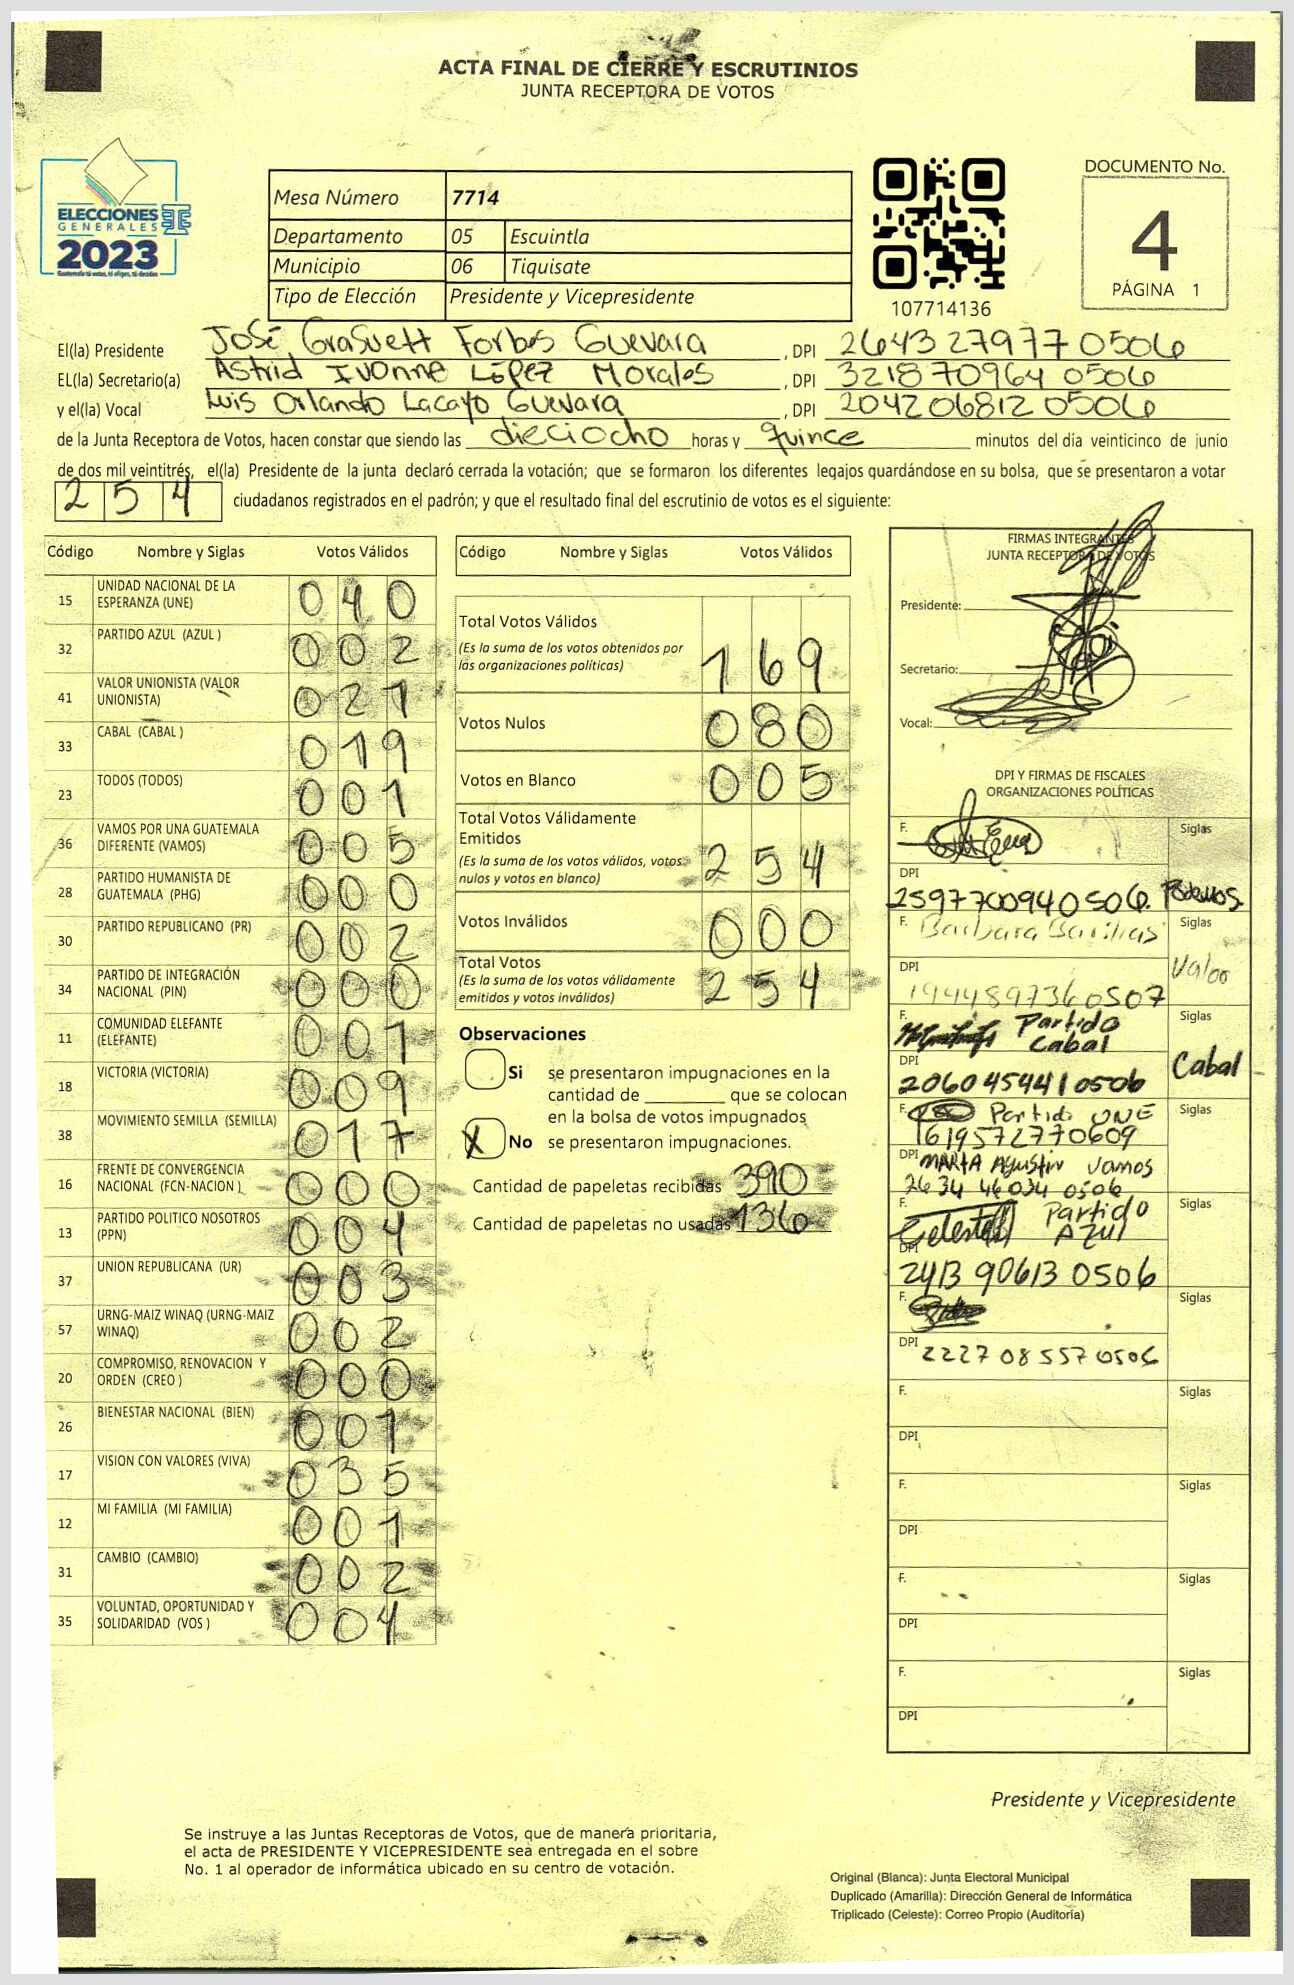 ACTA FINAL DE CIERRE Y ESCRUTINIOS
JUNTA RECEPTORA DE VOTOS
ELECCIONES
GENERALES
2023
Guatemala tú votas, tú eliges, tú decides
Mesa Número 7714
Departamento 05 Escuintla
Municipio 06 Tiquisate
Tipo de Elección Presidente y Vicepresidente
107714136
DOCUMENTO No.
4
PÁGINA 1
El(la) Presidente José Grasuett Forbes Guevara, DPI 2643 27977 0506
EL(la) Secretario(a) Astrid Ivonne López Morales, DPI 3218 70964 0506
y el(la) Vocal Luis Orlando Lacayo Guevara, DPI 2042 06812 0506
de la Junta Receptora de Votos, hacen constar que siendo las dieciocho horas y quince minutos del día veinticinco de junio
de dos mil veintitrés, el(la) Presidente de la junta declaró cerrada la votación; que se formaron los diferentes legajos quardándose en su bolsa, que se presentaron a votar
254 ciudadanos registrados en el padrón; y que el resultado final del escrutinio de votos es el siguiente:
Código Nombre y Siglas Votos Válidos
15 UNIDAD NACIONAL DE LA ESPERANZA (UNE) 040
32 PARTIDO AZUL (AZUL ) 002
41 VALOR UNIONISTA (VALOR UNIONISTA) 021
33 CABAL (CABAL ) 019
23 TODOS (TODOS) 001
36 VAMOS POR UNA GUATEMALA DIFERENTE (VAMOS) 005
28 PARTIDO HUMANISTA DE GUATEMALA (PHG) 000
30 PARTIDO REPUBLICANO (PR) 002
34 PARTIDO DE INTEGRACIÓN NACIONAL (PIN) 000
11 COMUNIDAD ELEFANTE (ELEFANTE) 001
18 VICTORIA (VICTORIA) 009
38 MOVIMIENTO SEMILLA (SEMILLA) 017
16 FRENTE DE CONVERGENCIA NACIONAL (FCN-NACION ) 000
13 PARTIDO POLITICO NOSOTROS (PPN) 004
37 UNION REPUBLICANA (UR) 003
57 URNG-MAIZ WINAQ (URNG-MAIZ WINAQ) 002
20 COMPROMISO, RENOVACION Y ORDEN (CREO ) 000
26 BIENESTAR NACIONAL (BIEN) 001
17 VISION CON VALORES (VIVA) 035
12 MI FAMILIA (MI FAMILIA) 001
31 CAMBIO (CAMBIO) 002
35 VOLUNTAD, OPORTUNIDAD Y SOLIDARIDAD (VOS ) 004
Código Nombre y Siglas Votos Válidos
Total Votos Válidos 169
(Es la suma de los votos obtenidos por
las organizaciones políticas)
Votos Nulos 080
Votos en Blanco 005
Total Votos Válidamente
Emitidos 254
(Es la suma de los votos válidos, votos
nulos y votos en blanco)
Votos Inválidos 000
Total Votos 254
(Es la suma de los votos válidamente
emitidos y votos inválidos)
Observaciones
Si se presentaron impugnaciones en la
cantidad de ________ que se colocan
en la bolsa de votos impugnados
X No se presentaron impugnaciones.
Cantidad de papeletas recibidas 390
Cantidad de papeletas no usadas 136
FIRMAS INTEGRANTES
JUNTA RECEPTORA DE VOTOS
Presidente:
Secretario:
Vocal:
DPI Y FIRMAS DE FISCALES
ORGANIZACIONES POLÍTICAS
F. Siglas
DPI
2597700940506. Podemos.
F. Barbara Barillas Siglas
DPI Valor
1944897360507
F. Partido Cabal Siglas
DPI Cabal
2060454410506
F. Partido UNE Siglas
1619572770609
DPI MARTA Agustin Vamos
2634 46034 0506
F. Partido AZUL Siglas
DPI
2413 90613 0506
F. Siglas
DPI 2227 08557 0506
F. Siglas
DPI
F. Siglas
DPI
F. Siglas
DPI
F. Siglas
DPI
Presidente y Vicepresidente
Se instruye a las Juntas Receptoras de Votos, que de manera prioritaria,
el acta de PRESIDENTE Y VICEPRESIDENTE sea entregada en el sobre
No. 1 al operador de informática ubicado en su centro de votación.
Original (Blanca): Junta Electoral Municipal
Duplicado (Amarilla): Dirección General de Informática
Triplicado (Celeste): Correo Propio (Auditoría)